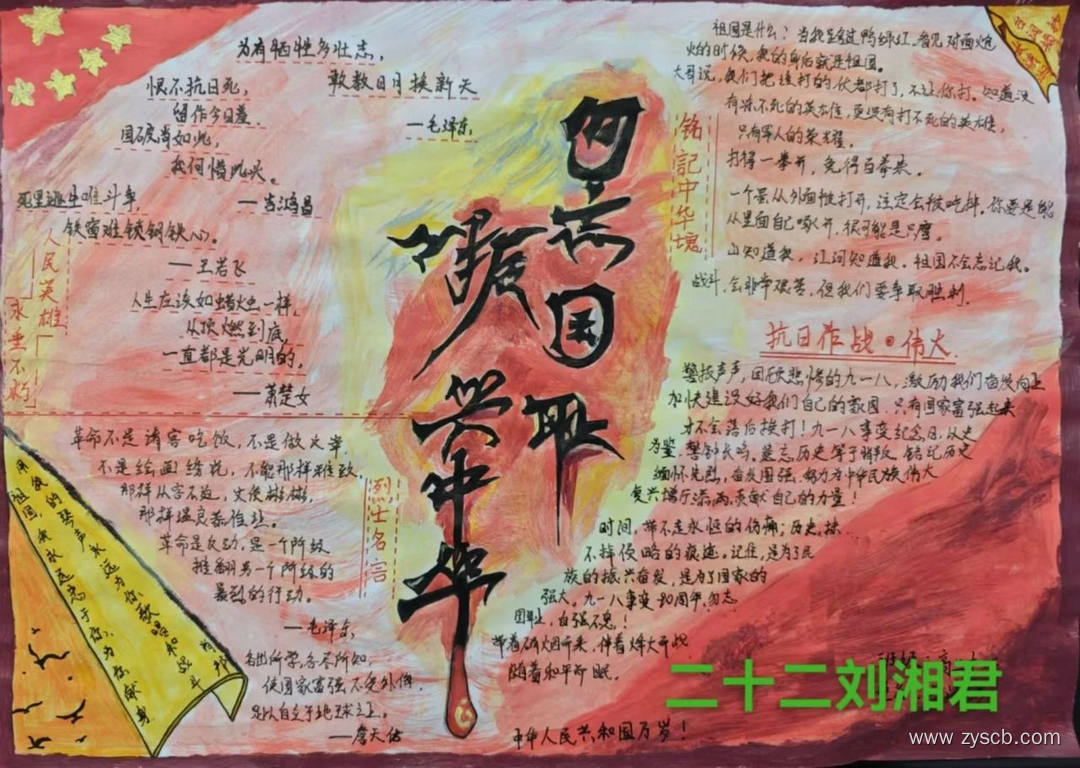 为有牺牲多壮志,
敢教日月换新天
—毛泽东
恨不抗日死,
留作今日羞.
国破尚如此,
我何惜此头。
—吉鸿昌
死里逃生唯斗争,
铁窗难锁钢铁心。
—王若飞
人生应该如蜡烛一样,
从顶燃到底,
一直都是光明的,
—萧楚女
人民英雄
永垂不朽
勿忘国耻
振兴中华
铭記中华魂
祖国是什么?当我跨过鸭绿江,看见对面炮
火的时候,我的身后就是祖国。
大哥说,我们把该打的仗都打了,不让你打.知道没
有冻不死的英雄,更没有打不死的英雄,
只有军人的荣耀.
打得一拳开,免得百拳来.
一个蛋从外面被打开,注定会被吃掉.你要是能
从里面自己啄开,很可能是只鹰。
山知道我,江河知道我.祖国不会忘记我。
战斗会非常艰苦,但我们要争取胜利.
抗日作战·伟大
警报声声,回顾悲惨的九一八,激励我们奋发向上
加快建设好我们自己的家园.只有国家富强起来
才不会落后挨打!九一八事变纪念日,以史
为鉴,警钟长鸣,莫忘历史等于释放.铭记历史
缅怀先烈,奋发图强,努力为中华民族伟大
复兴增厅添两,贡献自己的力量!
时间,带不走永恒的伤痛;历史,抹
不掉侵略的痕迹.记住,是为了民
族的振兴奋发,是为了国家的
强大.九一八事变90周年,勿忘
国耻,自强不息!
带着硝烟而来,伴着烽火而战
随着和平而眠.
中华人民共和国万岁!
革命不是请客吃饭,不是做文章
不是绘画绣花,不能那样雅致
那样从容不迫,文质彬彬,
那样温良恭俭让.
革命是暴动,是一个阶级
推翻另一个阶级的
暴烈的行动.
—毛泽东
烈士名言
各出所学,各尽所知,
使国家富强不受外侮,
足以自立于地球之上.
—詹天佑
我的琴声永远为你歌唱和战斗
祖国我永远忠于你,为你献身
二十二刘湘君
www.zyscb.com